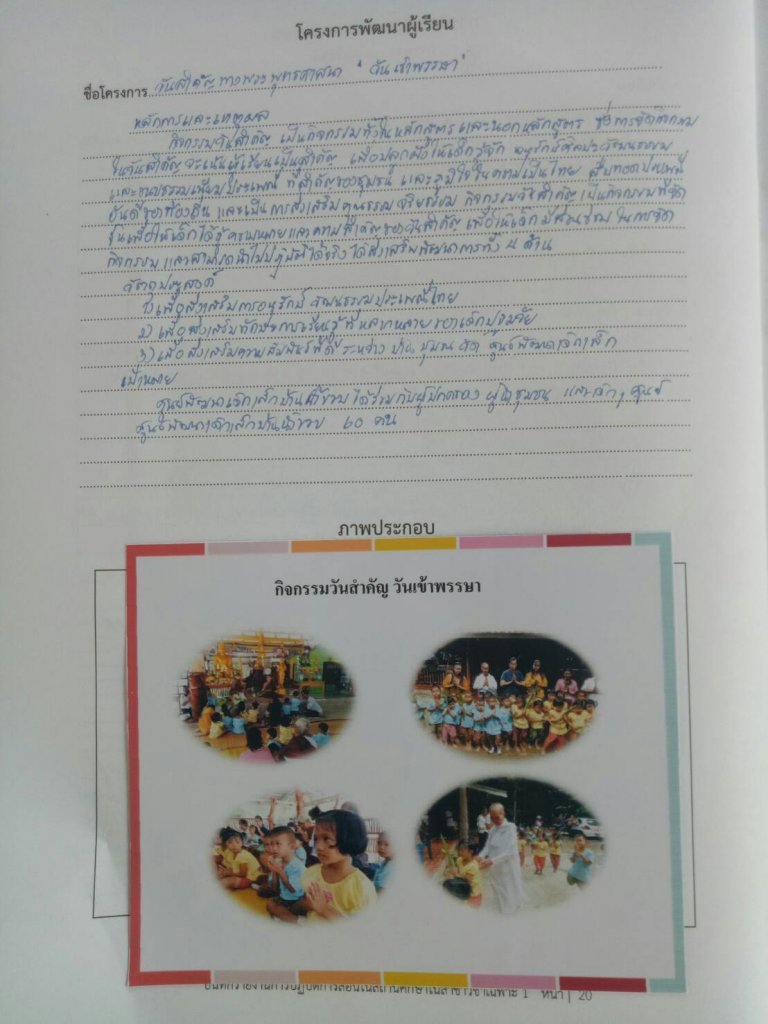 โครงการพัฒนาผู้เรียน
ชื่อโครงการ วันสำคัญทางพระพุทธศาสนา " วันเข้าพรรษา"
หลักการและเหตุผล
กิจกรรมวันสำคัญ เป็นกิจกรรมทั้งในหลักสูตร และนอกหลักสูตร ซึ่งการจัดกิจกรรม
ในวันสำคัญ จะเน้นผู้เรียนเป็นสำคัญ เพื่อปลูกฝังให้เด็กรู้จัก อนุรักษ์ศิลปะวัฒนธรรม
และขนบธรรมเนียมประเพณี ที่สำคัญของชุมชน และภูมิใจในความเป็นไทย สืบทอดประเพณี
อันดีของท้องถิ่น และเป็นการส่งเสริมคุณธรรม จริยธรรม กิจกรรมวันสำคัญ เป็นกิจกรรมที่จัด
ขึ้นเพื่อให้เด็กได้รู้ความหมายและความสำคัญของวันสำคัญ เพื่อให้เด็กมีส่วนร่วม ในการจัด
กิจกรรม และสามารถนำไปปฏิบัติได้จริง ได้ส่งเสริมพัฒนาการทั้ง 4 ด้าน
วัตถุประสงค์
1) เพื่อส่งเสริมการอนุรักษ์ วัฒนธรรมประเพณีไทย
2) เพื่อส่งเสริมทักษะการเรียนรู้ที่หลากหลายของเด็กปฐมวัย
3) เพื่อส่งเสริมความสัมพันธ์ที่ดี ระหว่าง บ้าน ชุมชน วัด ศูนย์พัฒนาเด็กเล็ก
เป้าหมาย
ศูนย์พัฒนาเด็กเล็กบ้าน ได้ร่วมกับผู้ปกครอง ผู้นำชุมชน และเด็กๆ ศูนย์
ศูนย์พัฒนาเด็กเล็กบ้าน 60 คน
ภาพประกอบ
กิจกรรมวันสำคัญ วันเข้าพรรษา
บันทึกรายงานการปฏิบัติการสอนในสถานศึกษาในสาขาวิชาเฉพาะ 1 หน้า | 20